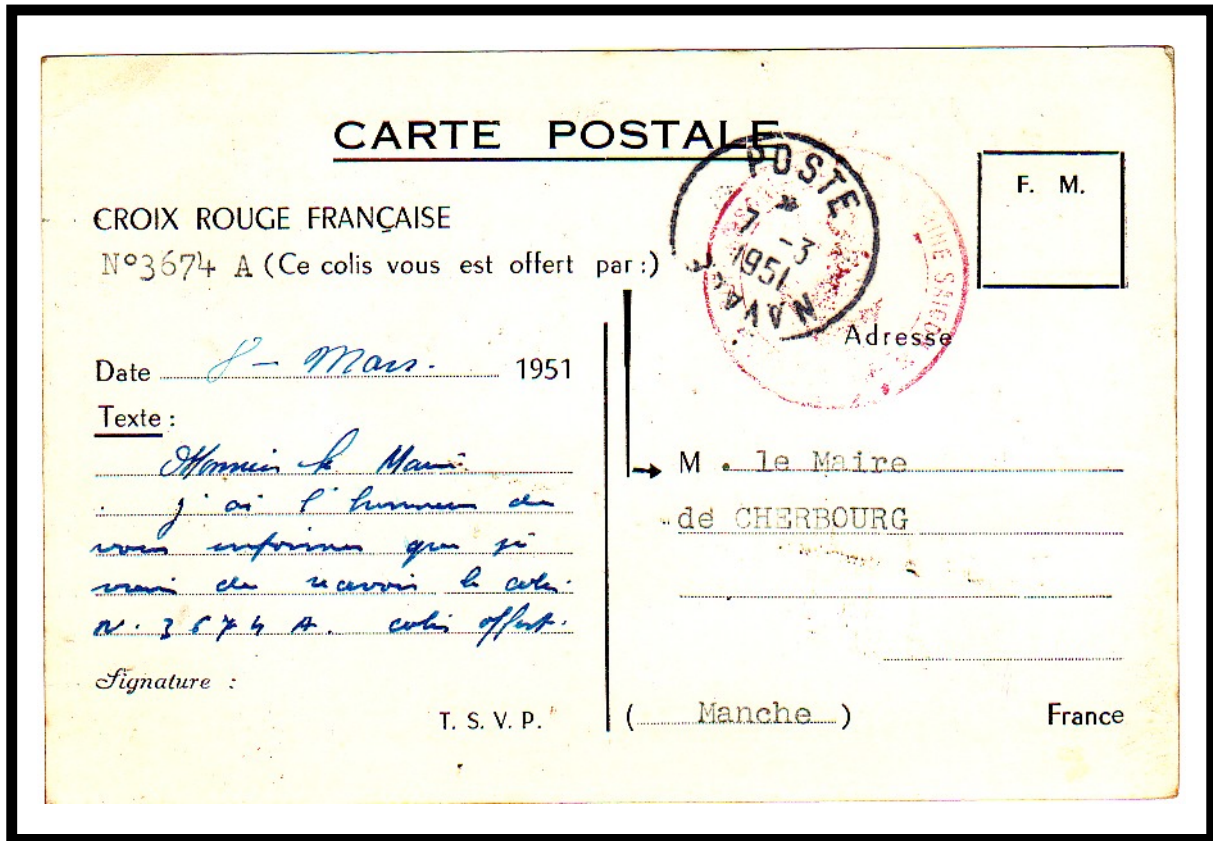 CARTE POSTALE
F. M.
CROIX ROUGE FRANÇAISE
N°3674 A (Ce colis vous est offert par :)
POSTE
7 -3
1951
NAVALE
MARINE SAIGON
Date 8 - Mars. 1951
Texte :
Monsieur le Maire.
j'ai l'honneur de
vous informer que je
viens de recevoir le colis
N. 3674 A. colis offert.
Signature :
T. S. V. P.
Adresse
M. le Maire
de CHERBOURG
( Manche ) France